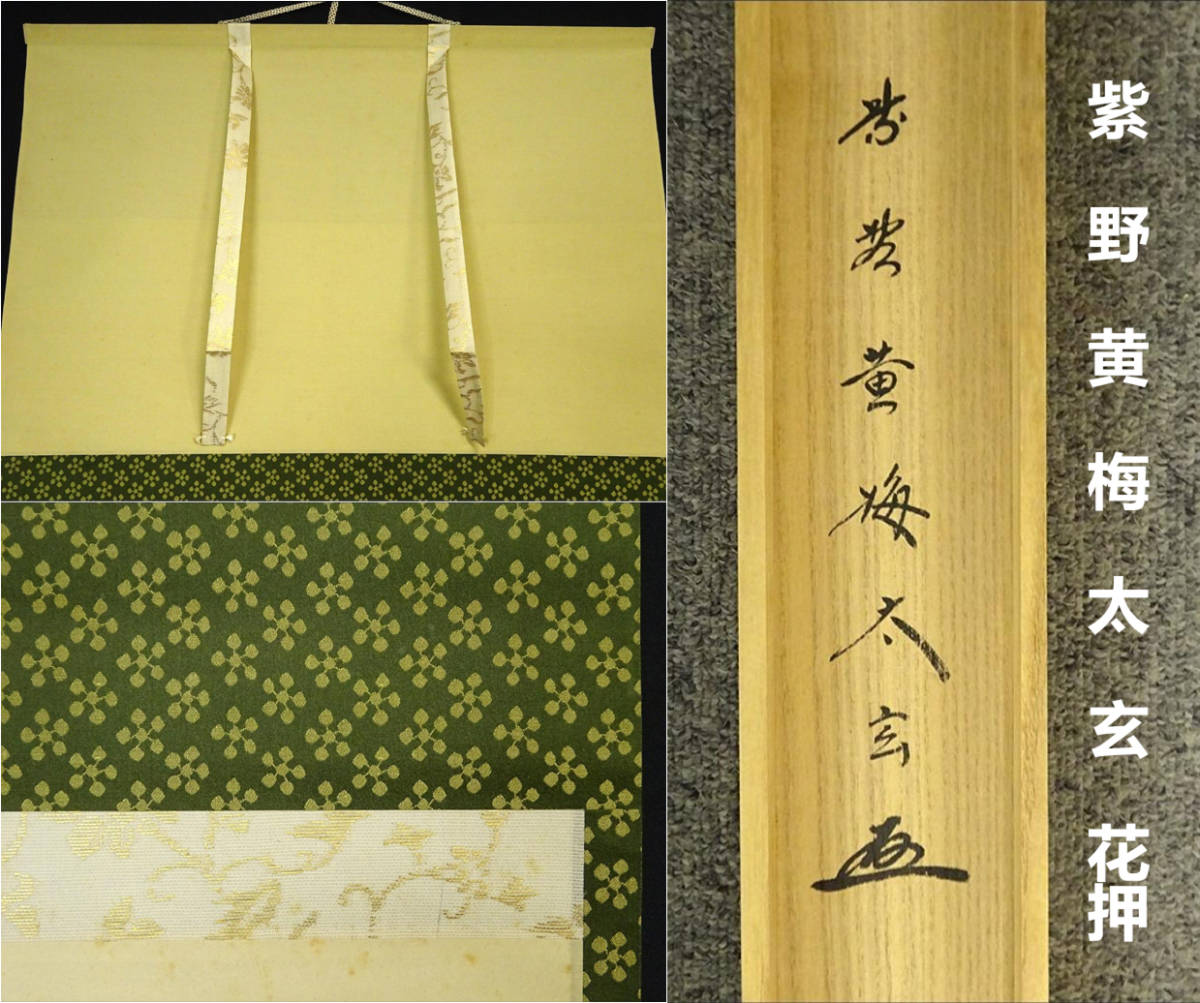 紫野黄梅太玄花押
紫野黄梅太玄